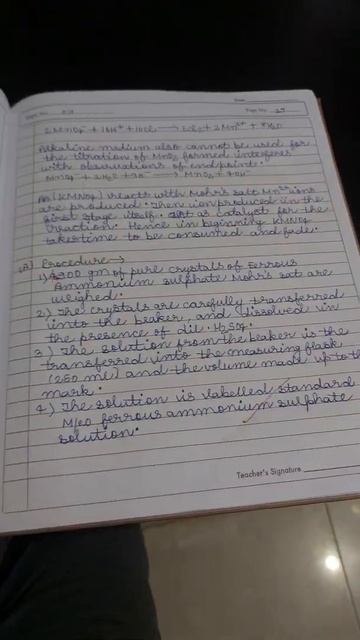 Alkaline medium also cannot be used for
the titration of MnO2 formed interferes
with observations of endpoints.
As (KMNO4) reacts with Mohr's salt Mn2+ ions
are produced. Then ion produced in the
first stage itself. Act as catalyst for the
reaction. Hence in beginning KMNO4
takes time to be consumed and fade.
(A) Procedure →
1) gm of pure crystals of Ferrous
Ammonium sulphate Mohr's sat are
weighed.
2) The crystals are carefully transferred
into the beaker, and dissolved in
the presence of dil. H2SO4.
3) The solution from the beaker is the
transferred into the measuring flask
(250 ml) and the volume made up to th
mark.
4) The solution is labelled standard
ferrous ammonium sulphate
solution.
Teacher's Signature